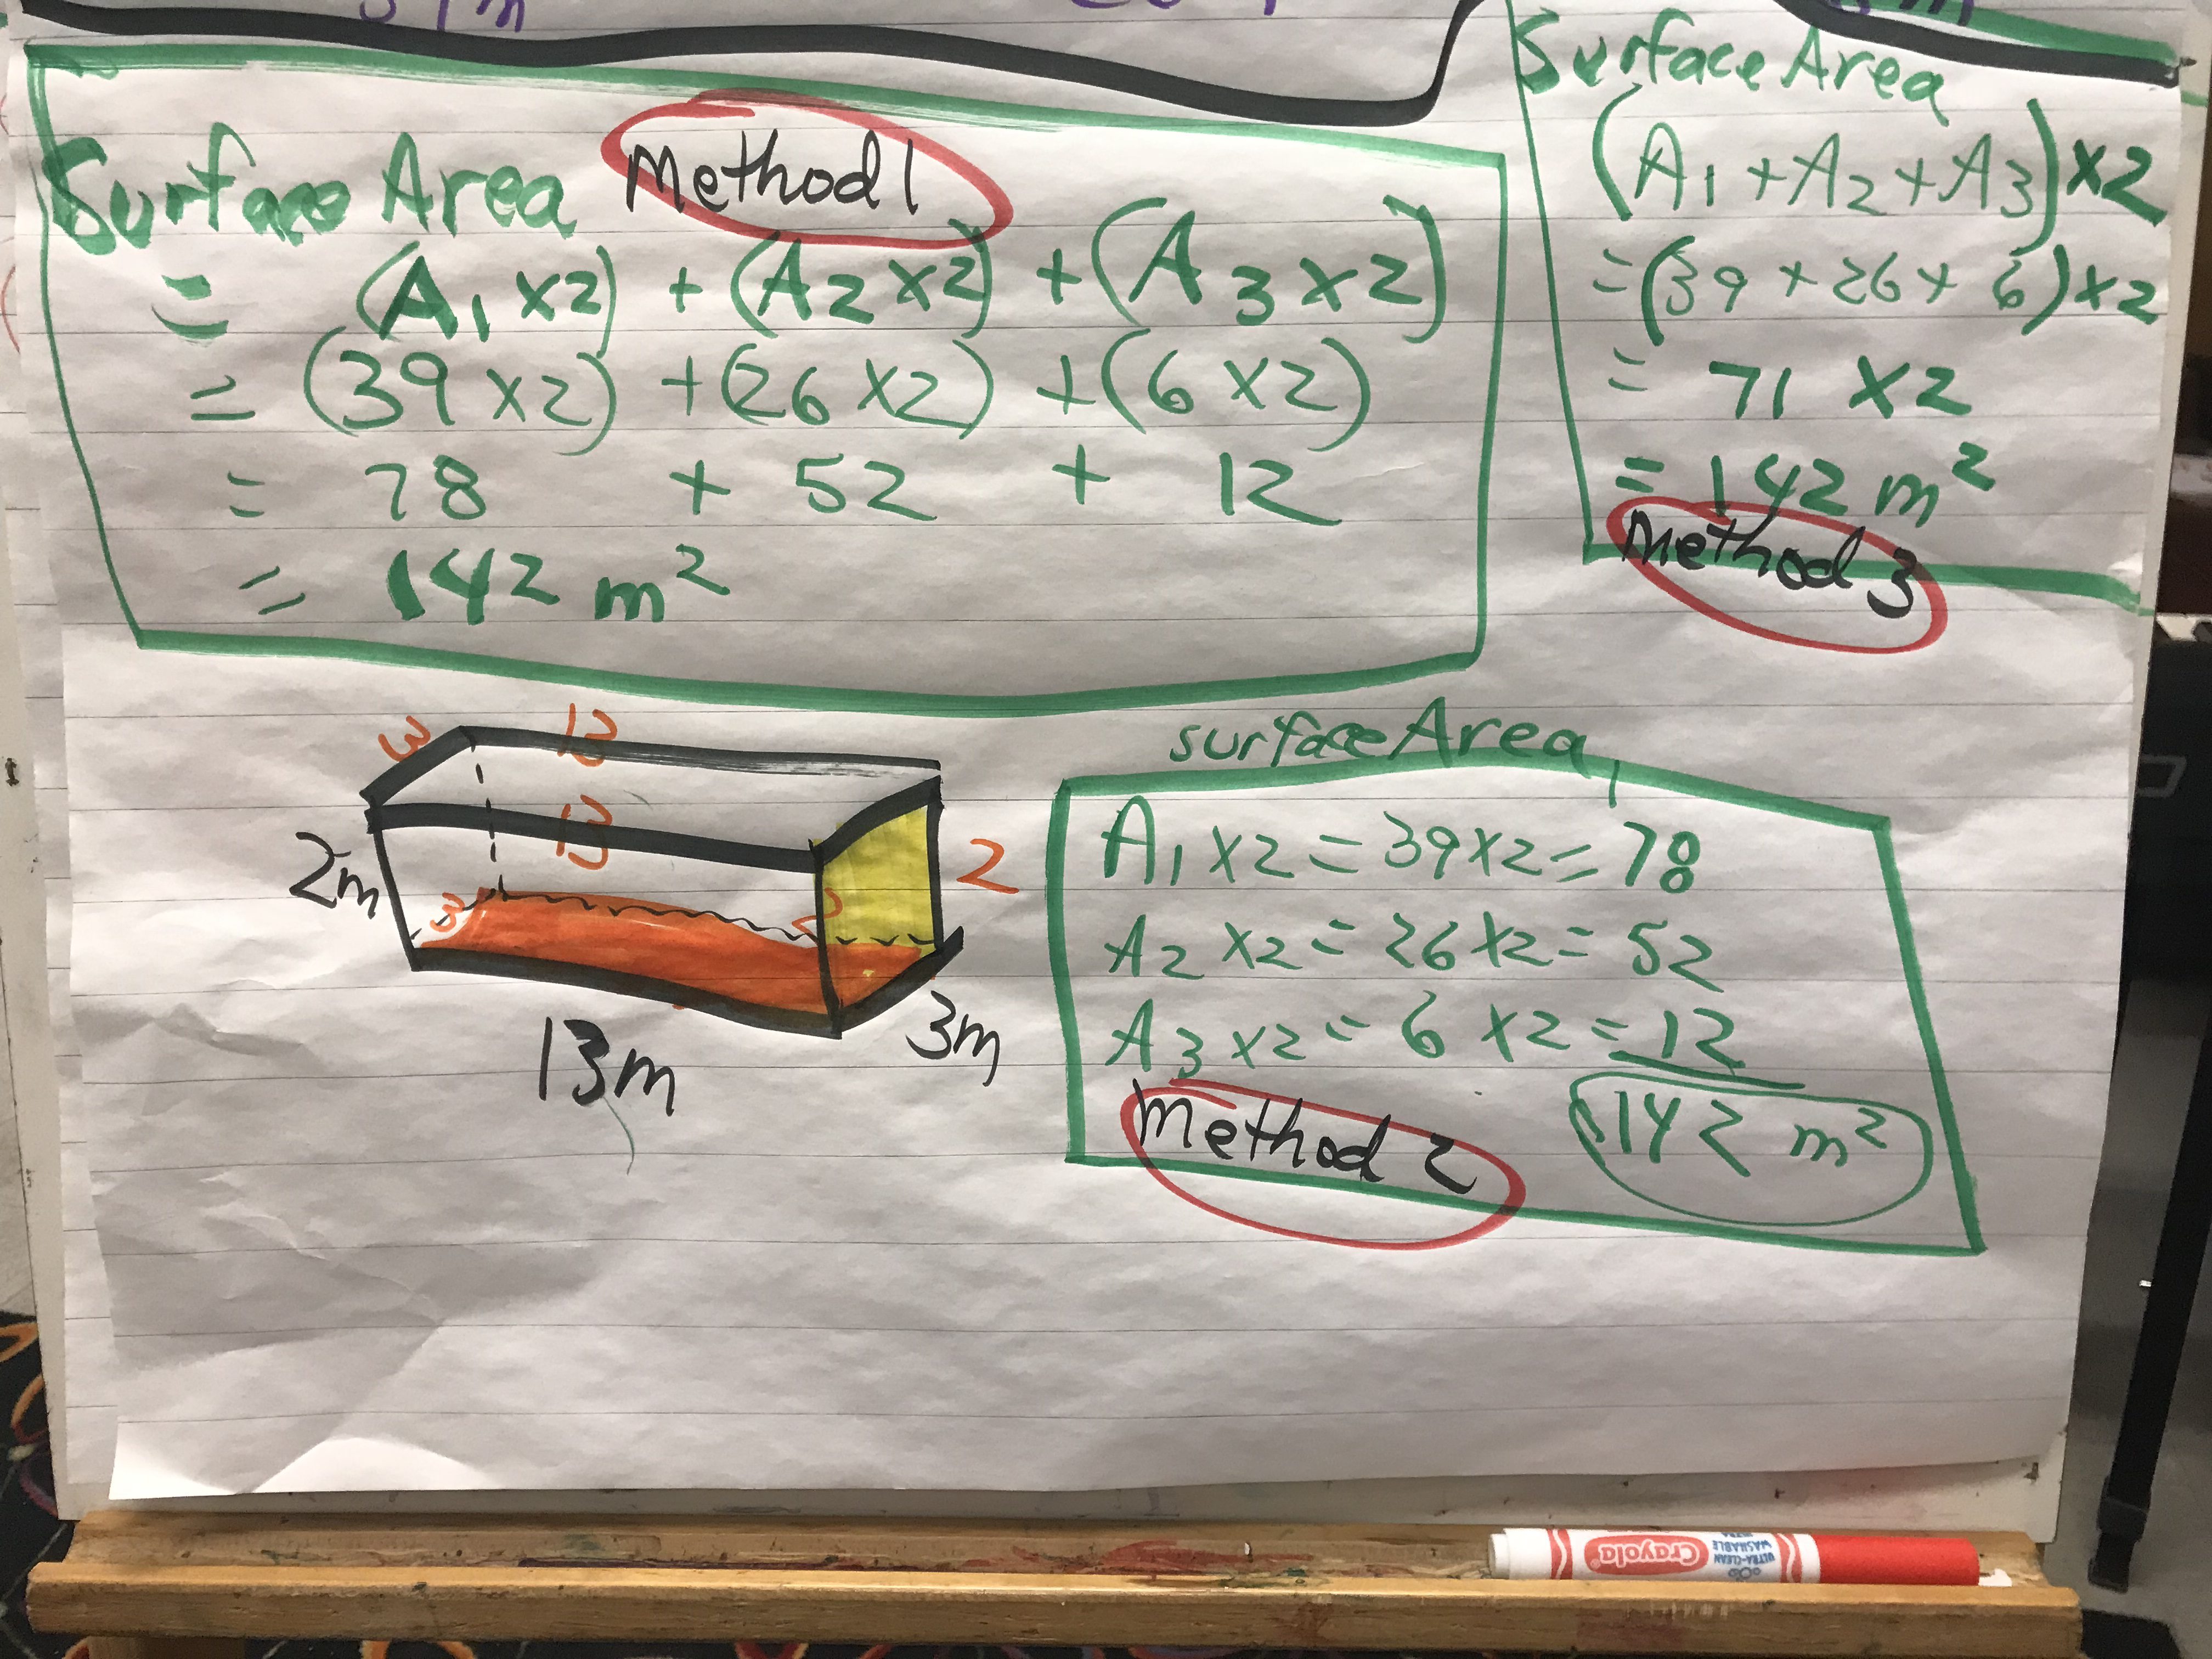 Surface Area Method 1
= (A1 x2) + (A2 x2) + (A3 x2)
= (39 x2) + (26 x2) + (6 x2)
= 78 + 52 + 12
= 142 m²
Surface Area
(A1 + A2 + A3) x2
= (39 + 26 + 6) x2
= 71 x2
= 142 m²
Method 3
3 13
13
2m 2
3 2
3m
13m
surface Area
1
A1 x2 = 39 x2 = 78
A2 x2 = 26 x2 = 52
A3 x2 = 6 x2 = 12
Method 2 142 m²
Crayola
ULTRA-CLEAN
WASHABLE